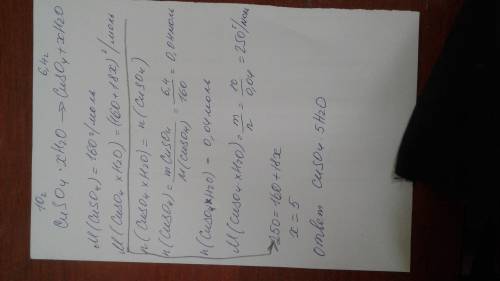 10г 6,4г
CuSO4 · xH2O → CuSO4 + xH2O
M(CuSO4) = 160 г/моль
M(CuSO4 xH2O) = (160 + 18x) г/моль
n(CuSO4 xH2O) = n(CuSO4)
n(CuSO4) = mCuSO4 / M(CuSO4) = 6,4 / 160 = 0,04 моль
n(CuSO4 xH2O) = 0,04 моль
M(CuSO4 xH2O) = m / n = 10 / 0,04 = 250 г/мол
250 = 160 + 18x
x = 5
ответ CuSO4 5H2O